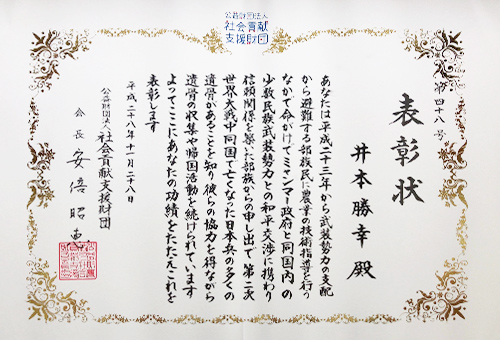 公益財団法人
社会貢献
支援財団
第四十八号
表彰状
井本勝幸 殿
あなたは平成二十三年から武装勢力の支配
から避難する部族民に農業の技術指導を行う
なかで命がけでミャンマー政府と同国内の
少数民族武装勢力との和平交渉に携わり
信頼関係を築いた部族からの申し出で 第二次
世界大戦中同国で亡くなった日本兵の多くの
遺骨があることを知り彼らの協力を得ながら
遺骨の収集や帰国活動を続けられています
よってここにあなたの功績をたたえこれを
表彰します
平成二十八年十一月二十八日
公益財団法人 社会貢献支援財団
会長 安倍昭恵